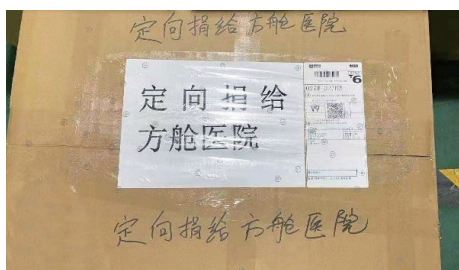 定向捐给方舱医院
定向捐给
方舱医院
V9
定向捐给方舱医院